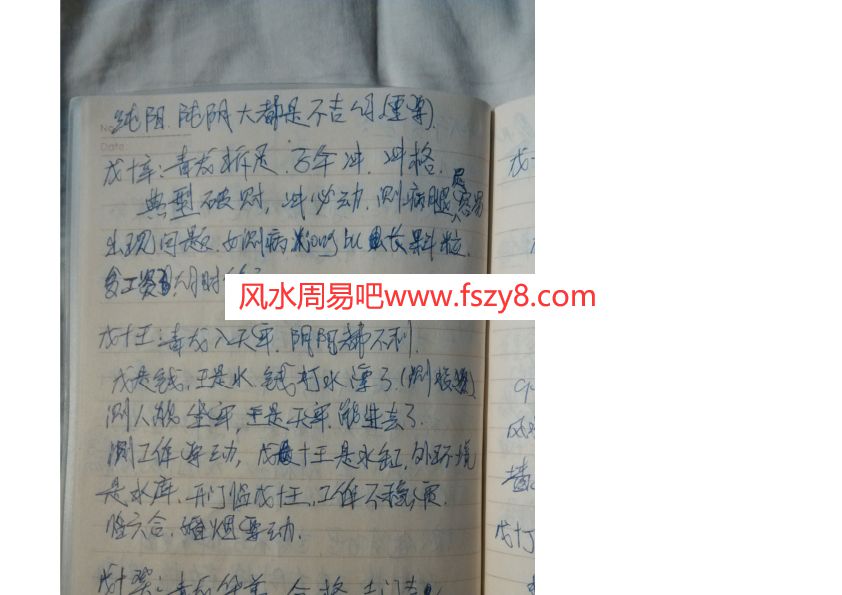 纯阳.纯阴大都是不吉的(重尊).
No
Date.
戊十辛:青龙折足.子午冲.冲格.
典型破财,冲必动.测病腿尾容易
出现问题.如测病 xiong bu 长果粒.
月时
风水周易吧www.fszy8.com
戊十壬:青龙入天牢.阴阳都不利.
戊是钱,壬是水.钱打水漂了.(测投资)
测人能坐牢,壬是天牢.能进去了.
测工作要动,戊十壬是水缸,外环境
是水库.开门临戊十壬,工作不稳定.
临六合.婚姻要动.
戊十癸:青龙华盖.合格.
戊十
戊十丁